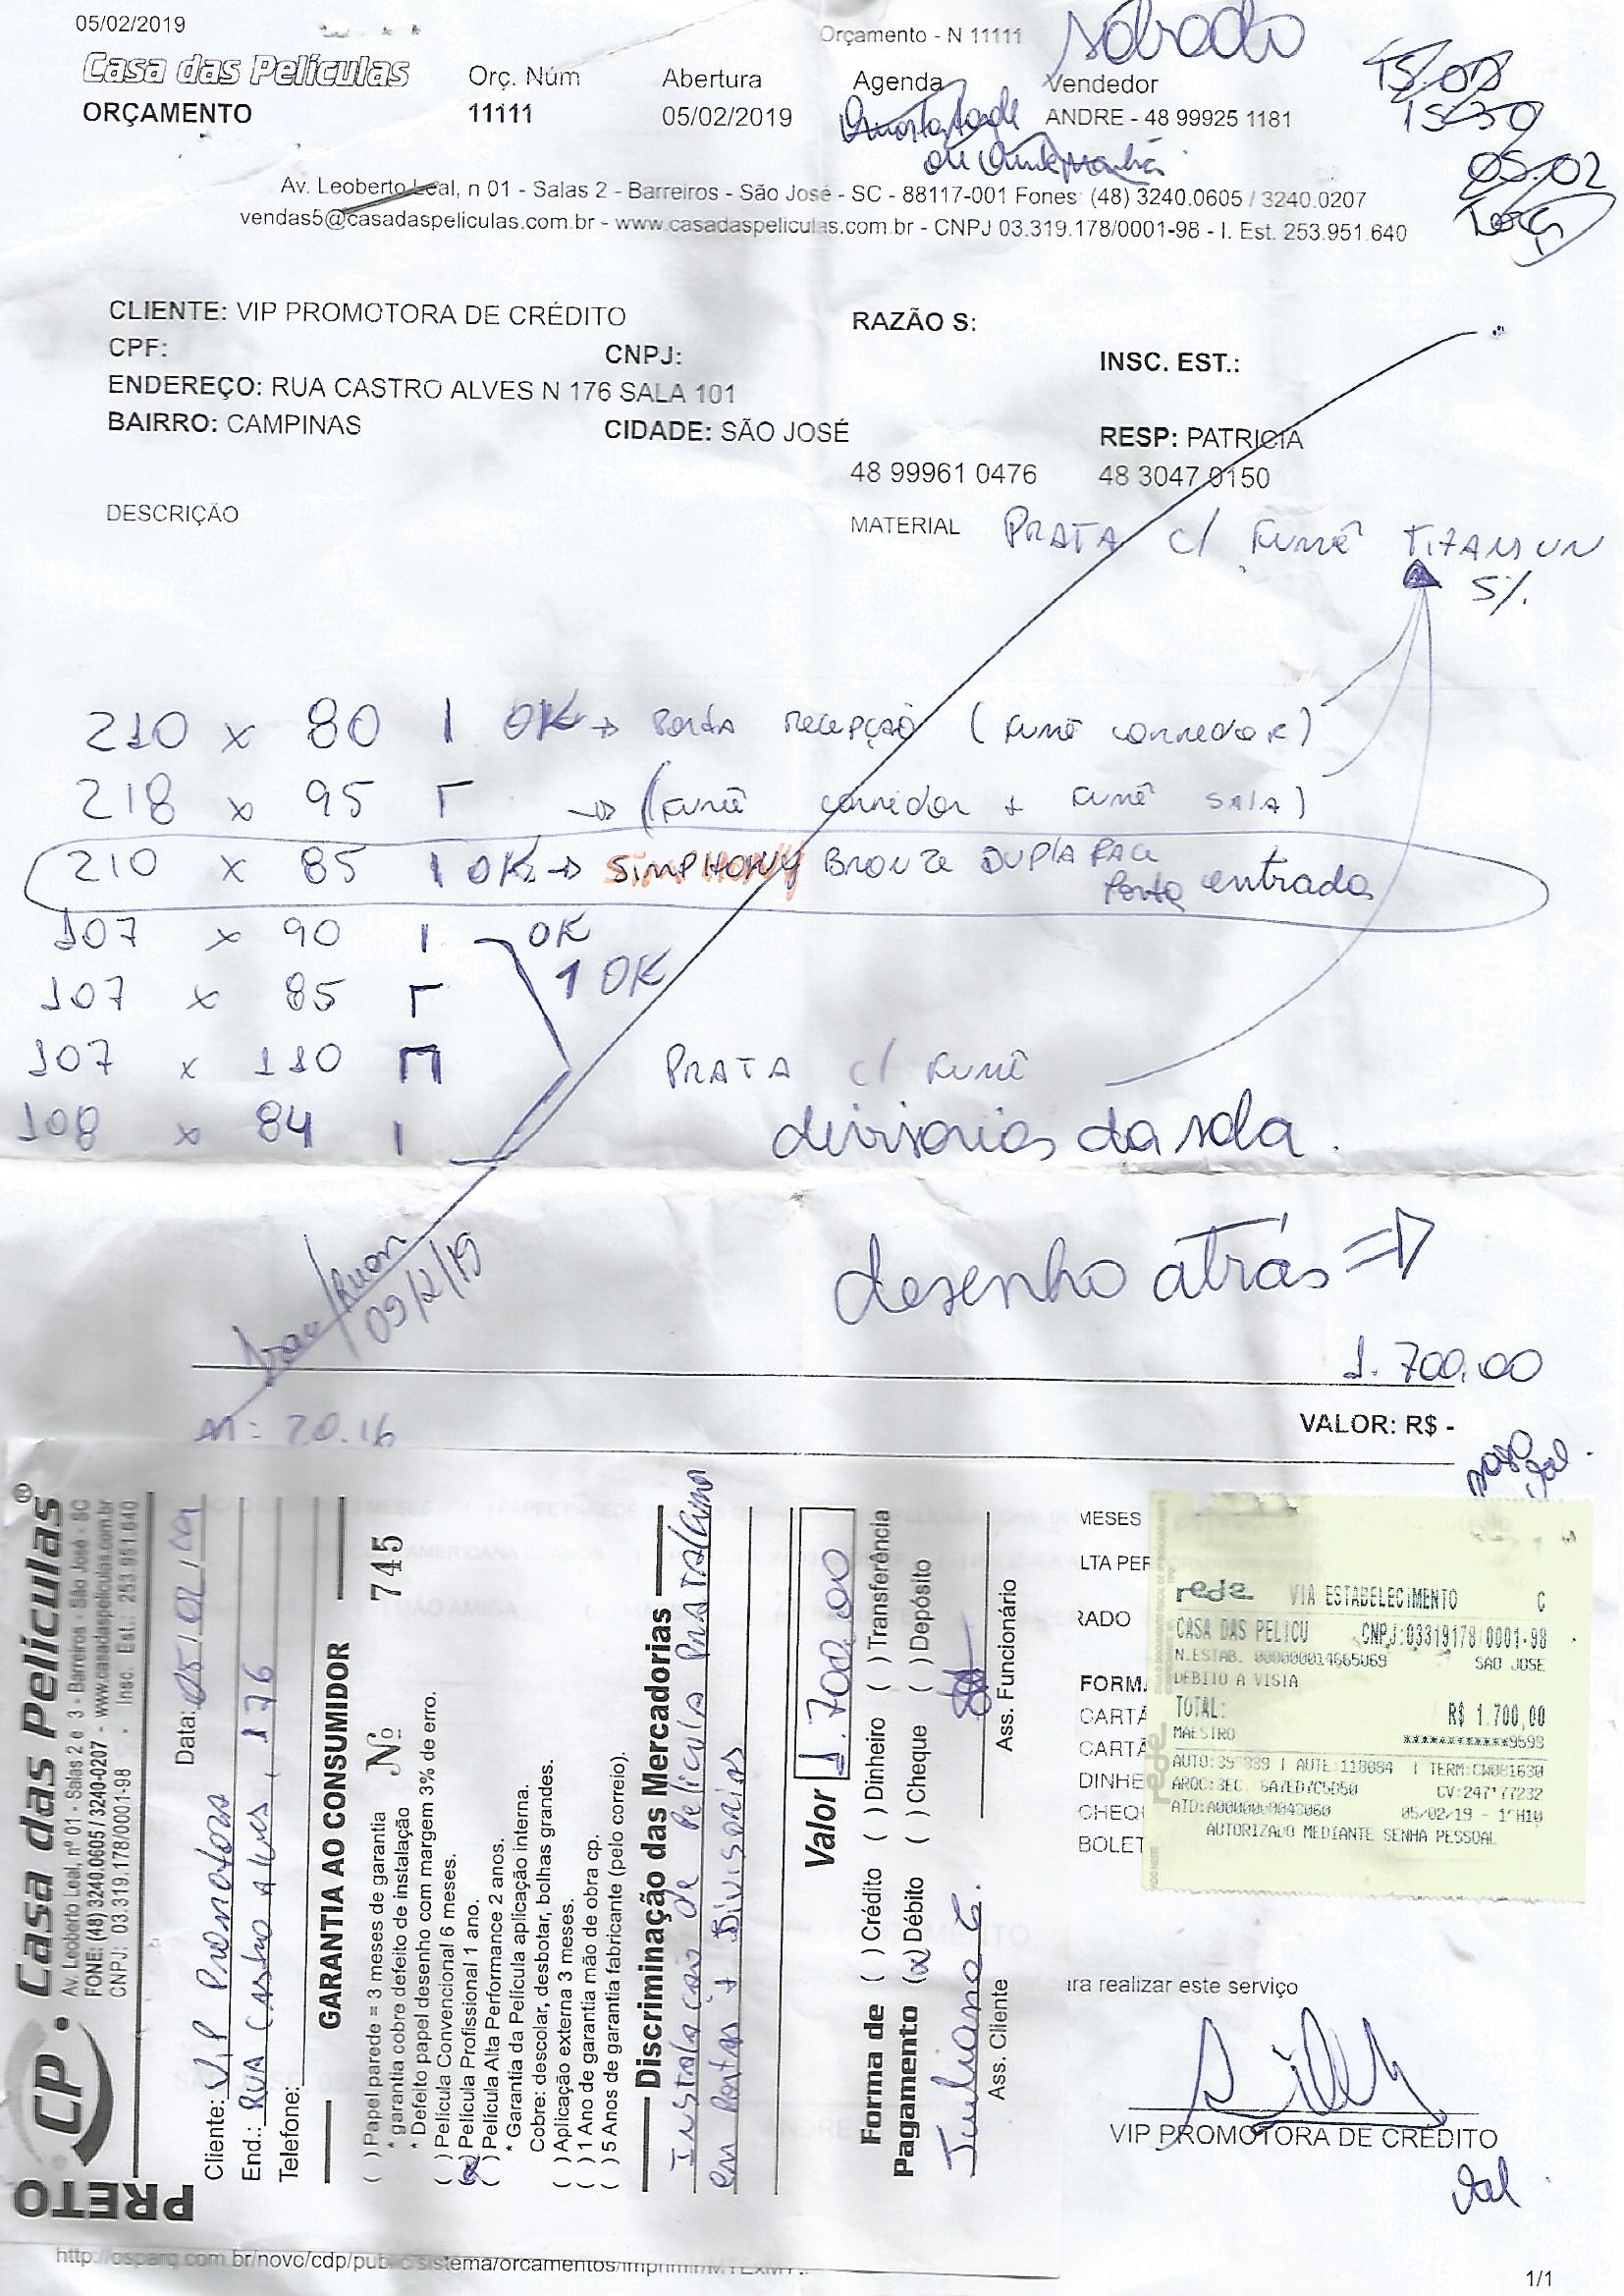 05/02/2019
Orçamento - N 11111
sábado
Casa das Películas
Orç. Núm
Abertura
Agenda
Vendedor
15:00
ORÇAMENTO
11111
05/02/2019
ANDRE - 48 99925 1181
15:30
05.02
Terça
Av. Leoberto Leal, n 01 - Salas 2 - Barreiros - São José - SC - 88117-001 Fones: (48) 3240.0605 / 3240.0207
vendas5@casadaspeliculas.com.br - www.casadaspeliculas.com.br - CNPJ 03.319.178/0001-98 - I. Est. 253.951.640
CLIENTE: VIP PROMOTORA DE CRÉDITO
RAZÃO S:
CPF:
CNPJ:
INSC. EST.:
ENDEREÇO: RUA CASTRO ALVES N 176 SALA 101
BAIRRO: CAMPINAS
CIDADE: SÃO JOSÉ
RESP: PATRICIA
48 99961 0476
48 3047 0150
DESCRIÇÃO
MATERIAL
PRATA c/ FUMÊ TITANIUN
5%
210 x 80 I OK → PORTA RECEPÇÃO (FUMÊ CORREDOR)
218 x 95 Γ → (FUMÊ corredor + FUMÊ SALA)
210 x 85 I OK → SIMPHONY BRONZE DUPLA FACE
Porta entrada
107 x 90 I OK
107 x 85 Γ 1 OK
107 x 110 Π PRATA c/ FUMÊ
108 x 84 I divisorias da sala.
desenho atrás ⇒
Isaac/Ruan
09/2/19
1.700,00
VALOR: R$ -
M: 20.16
CP Casa das Películas ®
PRETO
Av. Leoberto Leal, nº 01 - Salas 2 e 3 - Barreiros - São José - SC
FONE: (48) 3240.0605 / 3240-0207 - www.casadaspeliculas.com.br
CNPJ: 03.319.178/0001-98 - Insc. Est.: 253.951.640
Data: 05/02/19
Cliente: VIP Promotora
End.: RUA Castro Alves, 176
Telefone:
GARANTIA AO CONSUMIDOR
Nº 745
( ) Papel parede = 3 meses de garantia
* garantia cobre defeito de instalação
* Defeito papel desenho com margem 3% de erro.
( ) Película Convencional 6 meses.
(x) Película Profissional 1 ano.
( ) Película Alta Performance 2 anos.
* Garantia da Película aplicação interna.
Cobre: descolar, desbotar, bolhas grandes.
( ) Aplicação externa 3 meses.
( ) 1 Ano de garantia mão de obra cp.
( ) 5 Anos de garantia fabricante (pelo correio).
Discriminação das Mercadorias
Instalação de Película Prata/Fumê
em Portas + Divisorias
Valor 1.700,00
Forma de Pagamento
( ) Crédito ( ) Dinheiro ( ) Transferência
(x) Débito ( ) Cheque ( ) Depósito
Juliana C.
Ass. Cliente
Ass. Funcionário
MESES
LTA PER
RADO
FORM
CARTÃ
CARTÃ
DINHE
CHEQ
BOLET
rede VIA ESTABELECIMENTO C
CASA DAS PELICU CNPJ:03319178/0001-98
N.ESTAB. 000000014665069 SAO JOSE
DEBITO A VISTA
TOTAL: R$ 1.700,00
MAESTRO ************9593
AUTE:118084 | TERM:CW081630
05/02/19
AUTORIZADO MEDIANTE SENHA PESSOAL
ra realizar este serviço
VIP PROMOTORA DE CRÉDITO
1/1